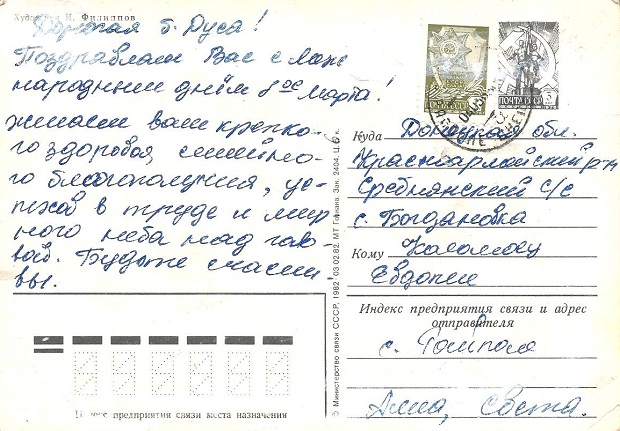 Художник И. Филиппов
Дорогая б. Дуся!
Поздравляем Вас с меж
народным днём 8ое марта!
желаем вам крепко-
го здоровья, семейно-
го благополучия, ус-
пехов в труде и мир
ного неба над гол
вой. Будьте счасли
вы.
ПОЧТА СССР
Куда Донецкая обл.
Красноармейский р-н
Сребнянский с/с
с. Богдановка
Кому
Евдокии
Индекс предприятия связи и адрес
отправителя
с.
Алла, Света.
Индекс предприятия связи места назначения
© Министерство связи СССР, 1982 03.02.82. МТ Гознака. Зак. 2404. Ц. 6 к.